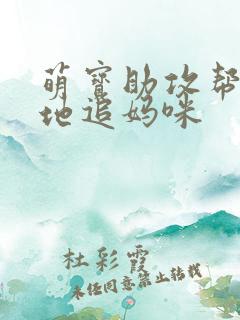 萌宝助攻帮
地追妈咪
杜彩霞
未经同意禁止转载